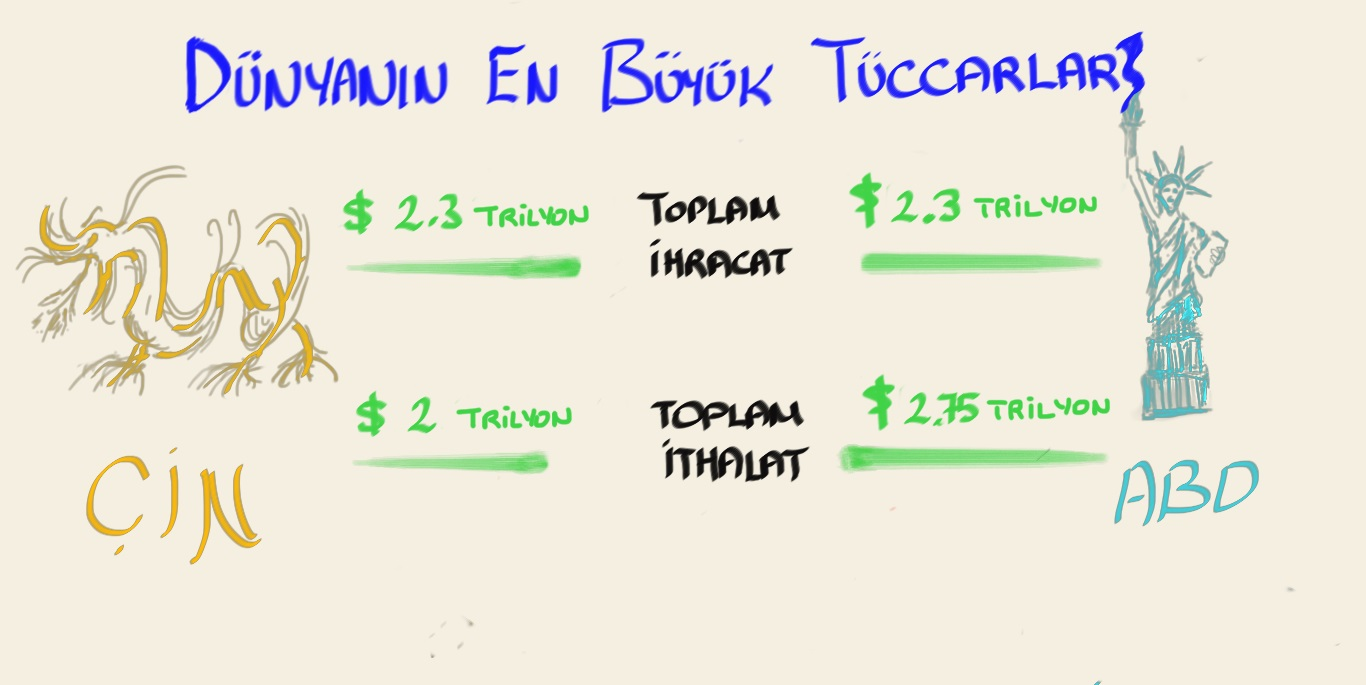 DÜNYANIN EN BÜYÜK TÜCCARLARI
$ 2.3 TRİLYON
TOPLAM
İHRACAT
$ 2.3 TRİLYON
$ 2 TRİLYON
TOPLAM
İTHALAT
$ 2.75 TRİLYON
ÇİN
ABD